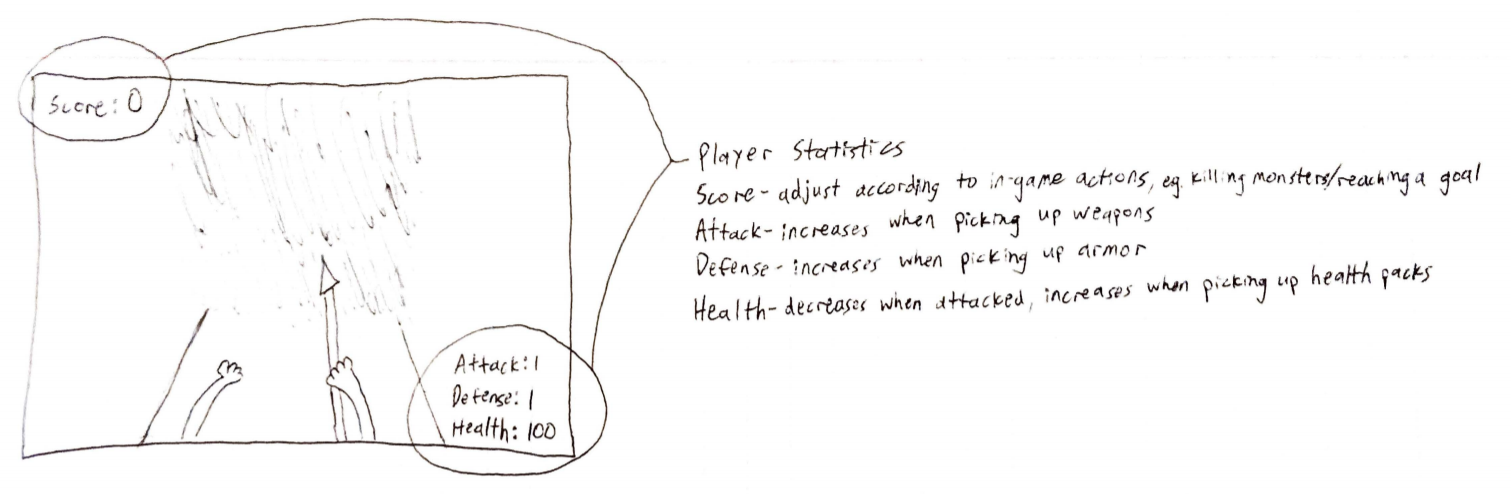 Score: 0
Player Statistics
Score- adjust according to in-game actions, eg. killing monsters/reaching a goal
Attack-increases when picking up weapons
Defense- increases when picking up armor
Health-decreases when attacked, increases when picking up health packs
Attack: 1
Defense: 1
Health: 100